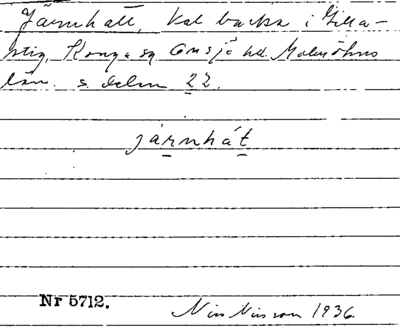 Järnhatt, kal backa i Gilla-
stig, Konga sn Onsjö hd. Malmöhus
län. s. delen 22.
järnhát
Nr 5712.
Nils Nilsson 1936.